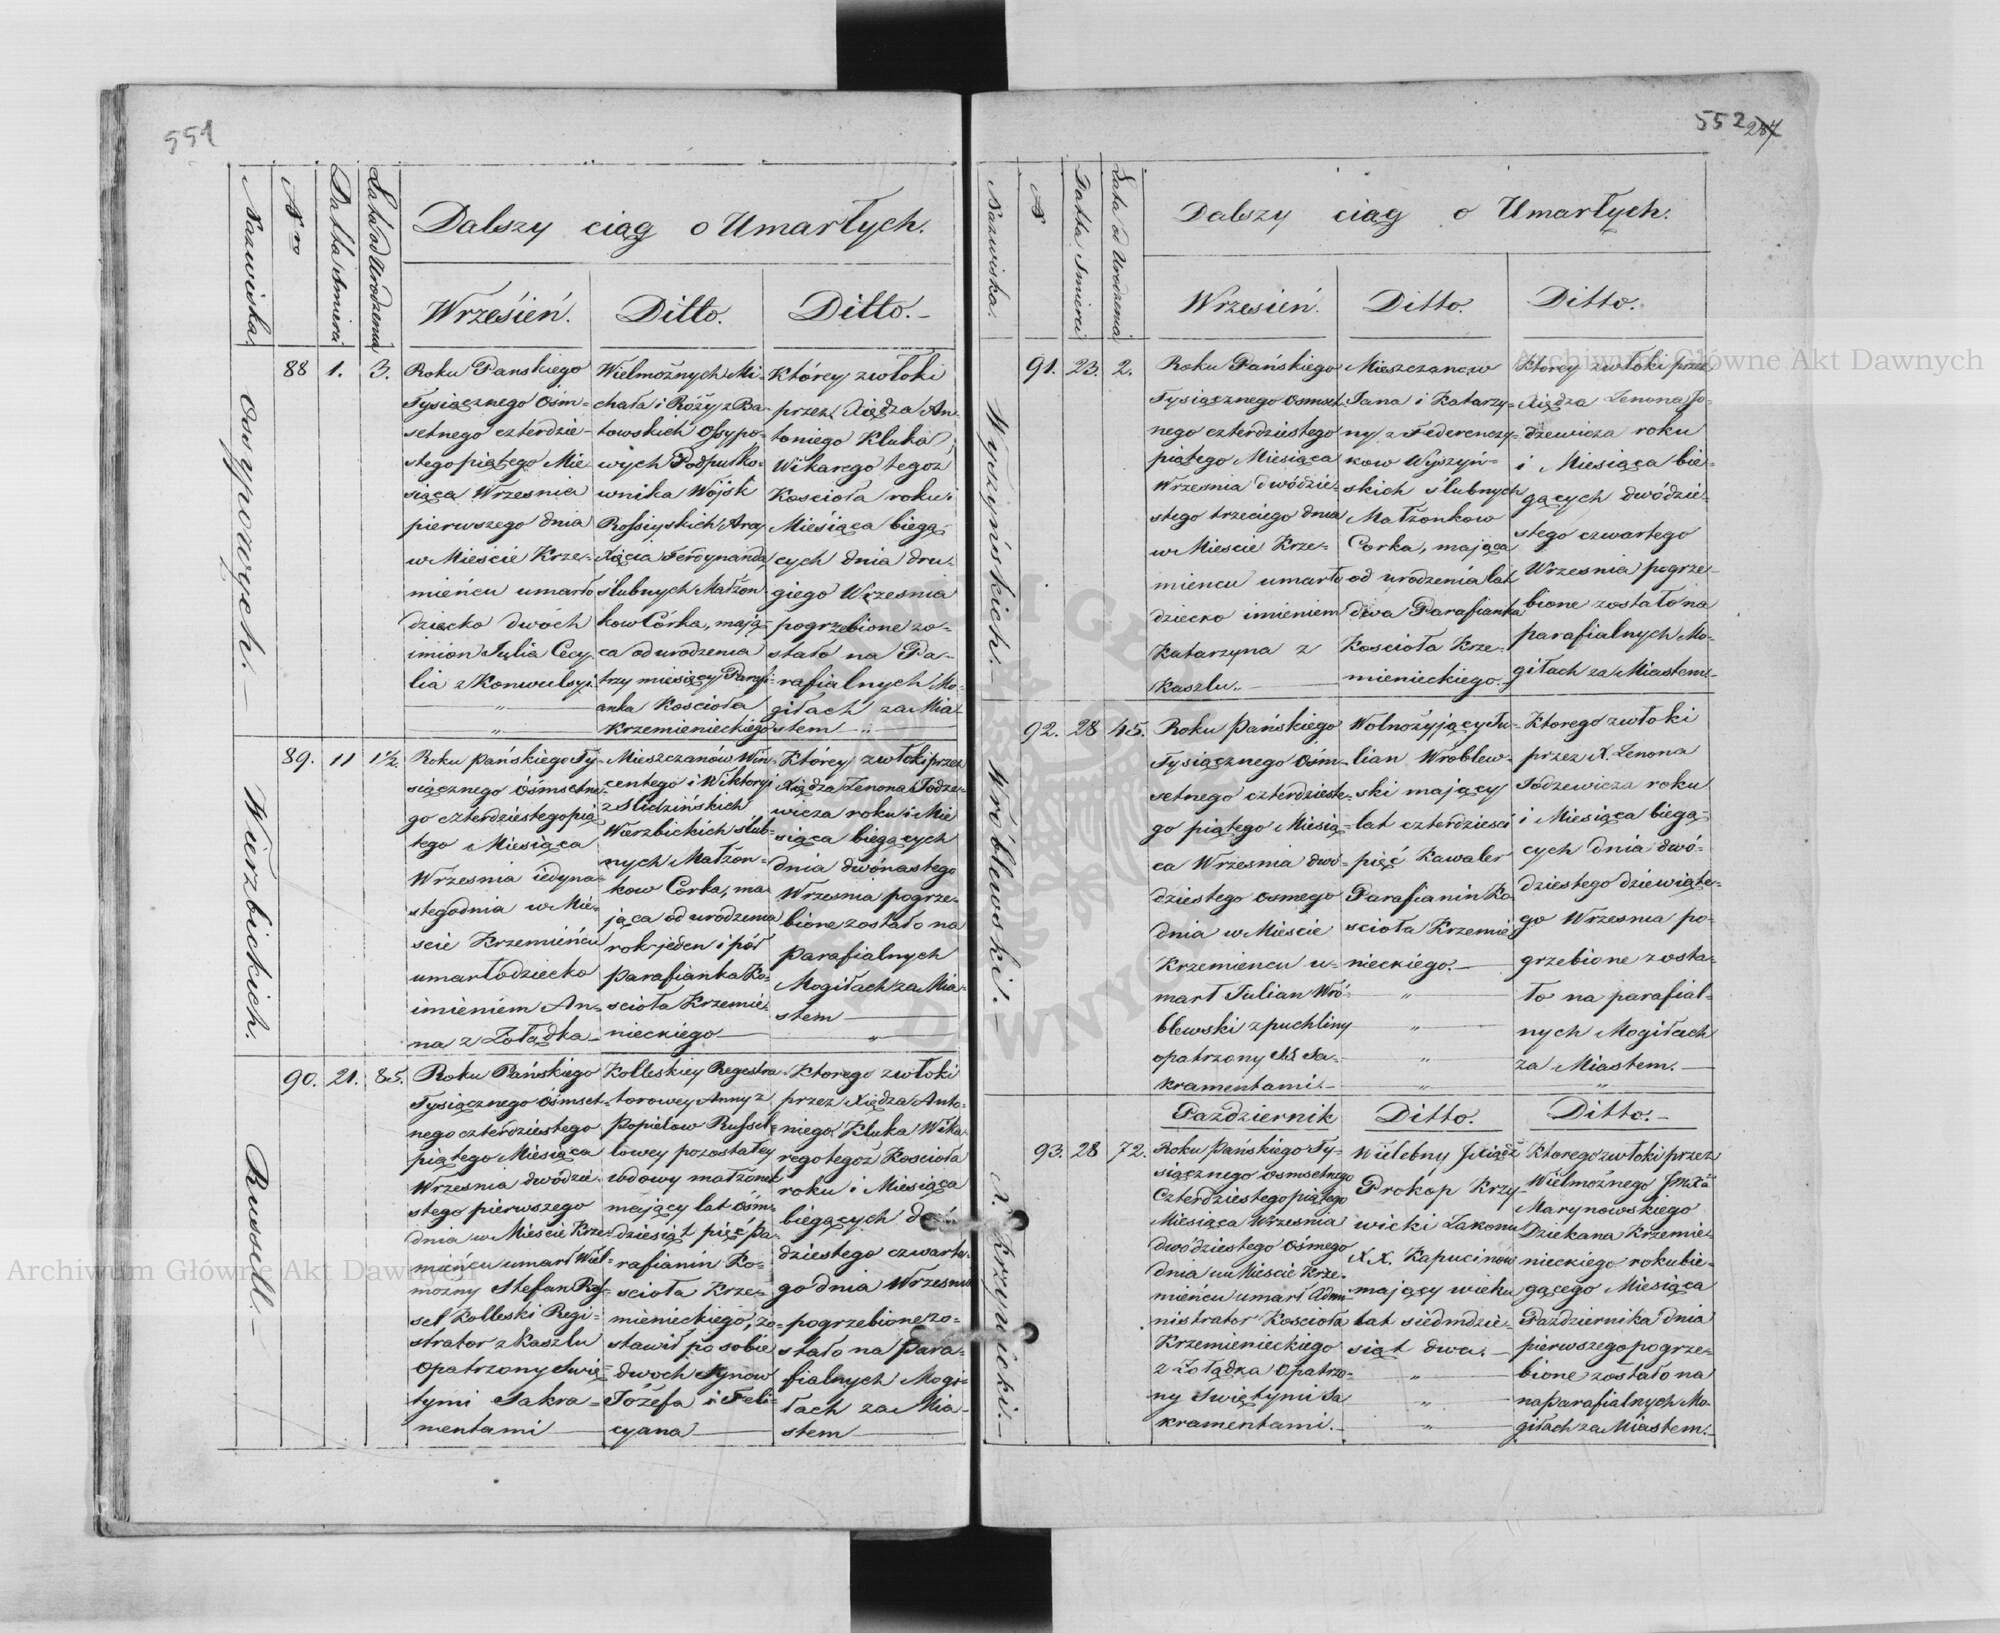 551
Dalszy ciąg o Umarłych.
Nazwiska
Nro
Datta śmierci
Lata od Urodzenia
Wrzesień.
Ditto.
Ditto.
Ossypowych.
88
1.
3.
Roku Panskiego
Tysiącznego Ośm=
setnego czterdzie=
stego piątego Mie
siąca Wrzesnia
pierwszego dnia
w Mieście Krze=
mieńcu umarło
dziecko dwóch
imion Julia Cecy,
lia z Konwulsyi.
Wielmożnych Mi=
chała i Róży z Ba=
towskich Ossypo=
wych Podpułko=
wnika Wojsk
Rossiyskich Arcy
Xięcia Ferdynanda
ślubnych Małżon
kow Córka, mają=
ca od urodzenia
trzy miesięcy Parafi=
anka Kościoła
Krzemienieckiego
Którey zwłoki
przez Xiędza An=
toniego Kluka
Wikarego tegoż
Kościoła roku i
Miesiąca biegą=
cych dnia dru=
giego Wrzesnia
pogrzebione zo=
stało na Pa=
rafialnych Mo=
giłach za Mia
stem
Wierzbickich.
89.
11
1½.
Roku Pańskiego Ty=
siącznego Ośmsetne=
go czterdziestego pią
tego Miesiąca
Wrzesnia iedyna=
stego dnia w Mie=
scie Krzemieńcu
umarło dziecko
imieniem An=
na z Żołądka
Mieszczanów Win=
centego i Wiktoryi
z Slidzińskich
Wierzbickich ślub=
nych Małżon=
kow Corka, ma=
jąca od urodzenia
rok jeden i pół
Parafianka Ko=
scioła Krzemie=
nieckiego
Którey zwłoki przez
Xiędza Zenona Jodze=
wicza roku i Mie
siąca biegących
dnia dwónastego
Wrzesnia pogrze=
bione zostało na
Parafialnych
Mogiłach za Mia=
stem
Russell.
90.
21.
85.
Roku Pańskiego
Tysiącznego Ośmset=
nego czterdziestego
piątego Miesiąca
Wrzesnia dwódzie=
stego pierwszego
dnia w Mieście Krze=
mieńcu umarł Wiel=
możny Stefan Rus=
sel Kolleski Regi=
strator z Kaszlu
Opatrzony Swię=
tymi Sakra=
mentami
Kolleskiey Regestra
torowey Anny z
Popielow Russel=
lowey pozostałey
wdowy małżonek
mający lat Ośm=
dziesiąt pięć Pa=
rafianin Ko=
scioła Krze=
mienieckiego, zo=
stawił po sobie
dwoch Synów
Józefa i Feli=
cyana
Ktorego zwłoki
przez Xiędza Anto=
niego Kluka Wika=
rego tegoż Kościoła
roku i Miesiąca
biegących
dziestego czwarte=
go dnia Wrzesnia
pogrzebione zo=
stało na Para=
fialnych Mogi=
łach za Mia=
stem
552
Dalszy ciąg o Umarłych.
Nazwiska.
N
Datta Smierci
Lata od Urodzenia
Wrzesień.
Ditto.
Ditto.
Wyszyńskich.
91.
23.
2.
Roku Pańskiego
Tysiącznego Osmset=
nego czterdziestego
piątego Miesiąca
Wrzesnia dwódzie=
stego trzeciego dnia
w Mieście Krze=
miencu umarło
dziecko imieniem
Katarzyna z
Kaszlu.
Mieszczanow
Jana i Katarzy=
ny z Federenczy=
kow Wyszyń=
skich ślubnych
Małżonkow
Corka, mająca
od urodzenia lat
dwa Parafianka
Kościoła Krze=
mienieckiego.
Ktorey zwłoki przez
Xiędza Zenona Jo=
dzewicza roku
i Miesiąca bie=
gących dwódzie=
stego czwartego
Wrzesnia pogrze=
bione zostało na
parafialnych Mo=
giłach za Miastem
Wróblewski.
92.
28
45.
Roku Pańskiego
Tysiącznego Ośm=
setnego czterdzieste=
go piątego Miesią=
ca Wrzesnia dwó=
dziestego osmego
dnia w Mieście
Krzemiencu u=
marł Julian Wró=
blewski z puchliny
opatrzony SS Sa=
kramentami.
Wolnożyjący Ju=
lian Wroblew=
ski mający
lat czterdziesci
pięć Kawaler
Parafianin Ko=
scioła Krzemie
nieckiego.
Ktorego zwłoki
przez X. Zenona
Jodzewicza roku
i Miesiąca biegą=
cych dnia dwó=
dziestego dziewiąte=
go Wrzesnia po=
grzebione zosta=
ło na parafial=
nych Mogiłach
za Miastem.
Pazdziernik
Ditto.
Ditto.
X. Krzywicki.
93.
28
72.
Roku Pańskiego Ty=
siącznego osmsetnego
Czterdziestego piątego
Miesiąca Wrzesnia
dwódziestego Ośmego
dnia w Mieście Krze=
mieńcu umarł Admi=
nistrator Kościoła
Krzemienieckiego
z Żołądka Opatrzo=
ny Swiętymi Sa
kramentami.
Wielebny JXiądz
Prokop Krzy=
wicki Zakonu
X.X. Kapucinow
mający wieku
lat siedmdzie=
siąt dwa.
Ktorego zwłoki przez
Wielmożnego JmXa
Marynowskiego
Dziekana Krzemie=
nieckiego roku bie=
gącego Miesiąca
Pazdziernika dnia
pierwszego pogrze=
bione zostało na
na Parafialnych Mo=
giłach za Miastem.
Archiwum Główne Akt Dawnych
Archiwum Główne Akt Dawnych